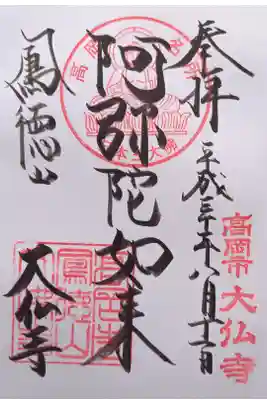 奉拝
平成三十年八月
高岡市 大仏寺
阿弥陀如来
鳳徳山
大仏寺